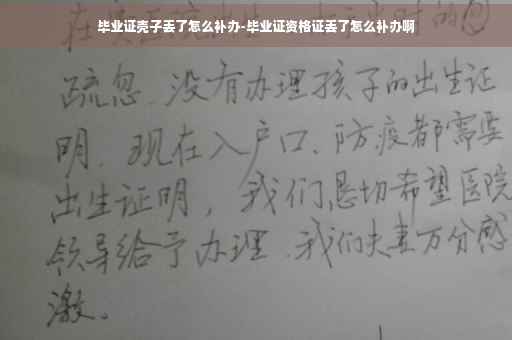 毕业证壳子丢了怎么补办-毕业证资格证丢了怎么补办啊
疏忽、没有办理孩子的出生证
明、现在入户口、防疫都需要
出生证明，我们恳切希望医院
领导给予办理、我们夫妻万分感
激。